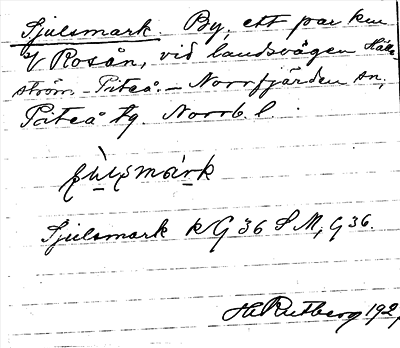 Sjulsmark. By, ett par km
V Rosån, vid landsvägen Häll-
ström - Piteå. - Norrfjärden sn,
Piteå tg. Norrb. l.
Sjulsmark RG 36 SM, G 36.
H. Rutberg 192